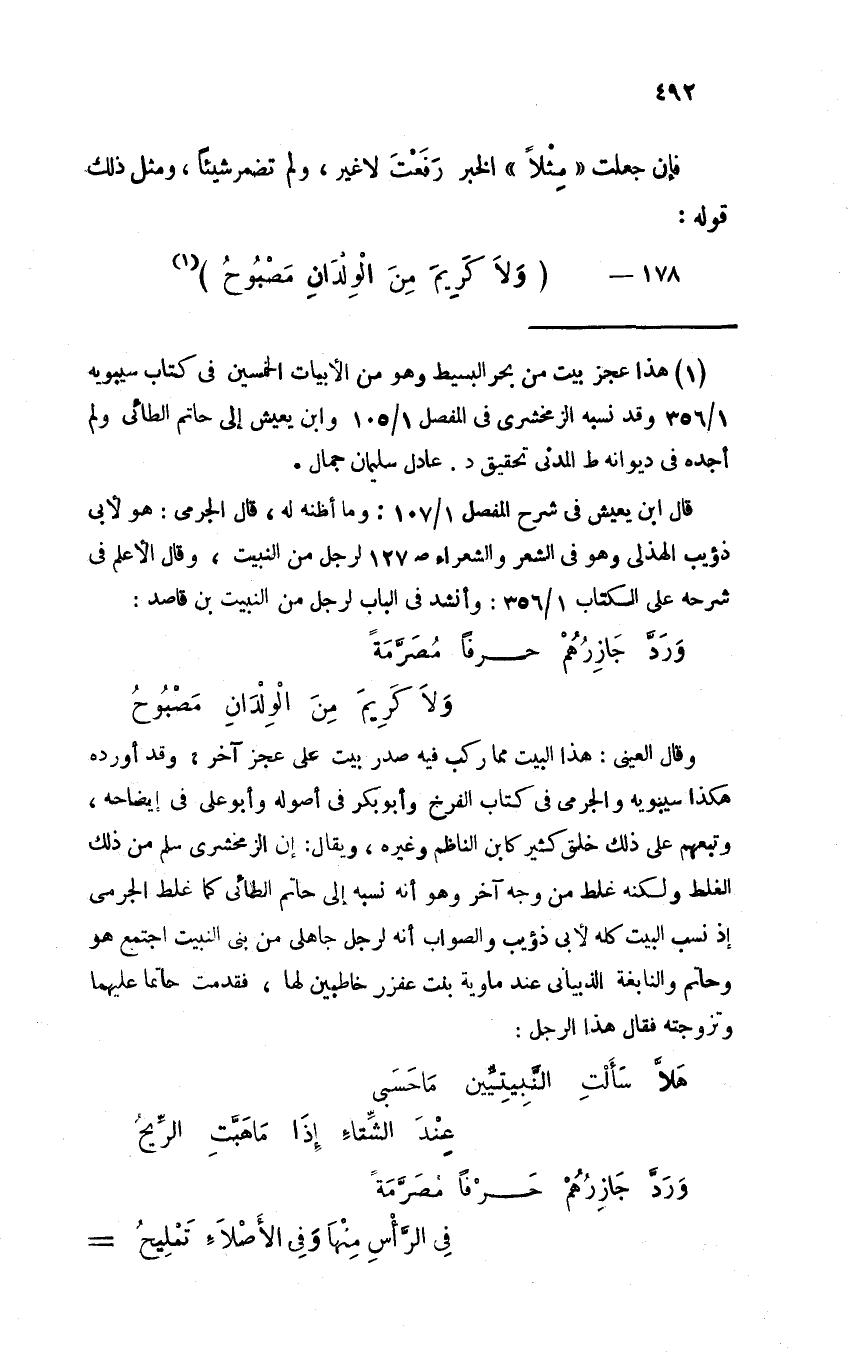 ٤٩٢
فإن جعلت « مِثْلاً » الخبر رَفَعْتَ لاغير ، ولم تضمر شيئاً ، ومثل ذلك
قوله :
١٧٨ — ( وَلاَ كَرِيمَ مِنَ الْوِلْدَانِ مَصْبُوحُ )(١)
(١) هذا عجز بيت من بحر البسيط وهو من الأبيات الخمسين فى كتاب سيبويه
٣٥٦/١ وقد نسبه الزمخشرى فى المفصل ١٠٥/١ وابن يعيش إلى حاتم الطائى ولم
أجده فى ديوانه ط المدنى تحقيق د . عادل سليمان جمال .
قال ابن يعيش فى شرح المفصل ١٠٧/١ : وما أظنه له ، قال الجرمى : هو لأبى
ذؤيب الهذلى وهو فى الشعر والشعراء ص ١٢٧ لرجل من النبيت ، وقال الأعلم فى
شرحه على الكتاب ٣٥٦/١ : وأنشد فى الباب لرجل من النبيت بن قاصد :
وَرَدَّ جَازِرُهُمْ حـــرفاً مُصَرَّمَةً
وَلاَ كَرِيمَ مِنَ الْوِلْدَانِ مَصْبُوحُ
وقال العينى : هذا البيت مما ركب فيه صدر بيت على عجز آخر ؛ وقد أورده
هكذا سيبويه والجرمى فى كتاب الفرخ وأبوبكر فى أصوله وأبوعلى فى إيضاحه ،
وتبعهم على ذلك خلق كثير كابن الناظم وغيره ، ويقال: إن الزمخشرى سلم من ذلك
الغلط ولكنه غلط من وجه آخر وهو أنه نسبه إلى حاتم الطائى كما غلط الجرمى
إذ نسب البيت كله لأبى ذؤيب والصواب أنه لرجل جاهلى من بنى النبيت اجتمع هو
وحاتم والنابغة الذبيانى عند ماوية بنت عفزر خاطبين لها ، فقدمت حاتما عليهما
وتزوجته فقال هذا الرجل :
هَلاَّ سَأَلْتِ النَّبِيتِيِّين مَاحَسَبِى
عِنْدَ الشِّقاءِ إِذَا مَاهَبَّتِ الرِّيحُ
وَرَدَّ جَازِرُهُمْ حَـــرْفاً مُصَرَّمَةً
فِى الرَّأْسِ مِنْهَا وَفِى الأَصْلاَءِ تَمْلِيحُ =